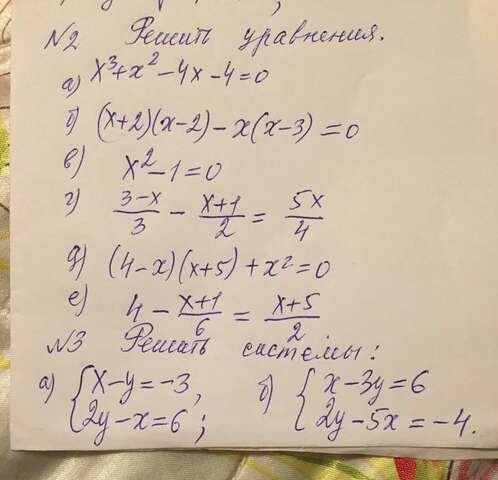 №2 Решить уравнения.
а) x³+x²-4x-4=0
б) (x+2)(x-2)-x(x-3)=0
в) x²-1=0
г) \frac{3-x}{3} - \frac{x+1}{2} = \frac{5x}{4}
д) (4-x)(x+5)+x²=0
е) 4 - \frac{x+1}{6} = \frac{x+5}{2}
№3 Решить системы:
а) { x-y=-3, б) { x-3y=6
2y-x=6; 2y-5x=-4.